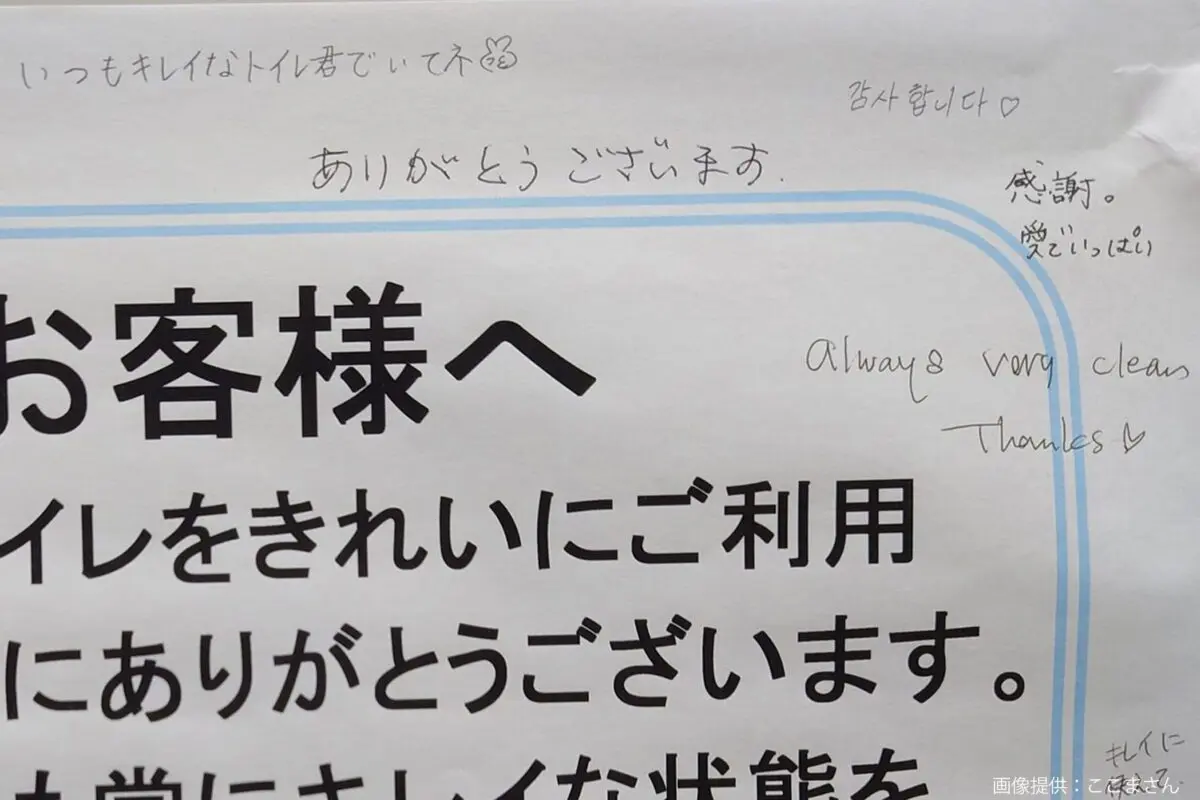 いつもキレイなトイレ君でいてネ
감사합니다♡
ありがとうございます.
感謝。
愛でいっぱい
お客様へ
Always very clean
Thanks♡
イレをきれいにご利用
にありがとうございます。
も常にキレイな状態を
キレイに
画像提供：ここまさん